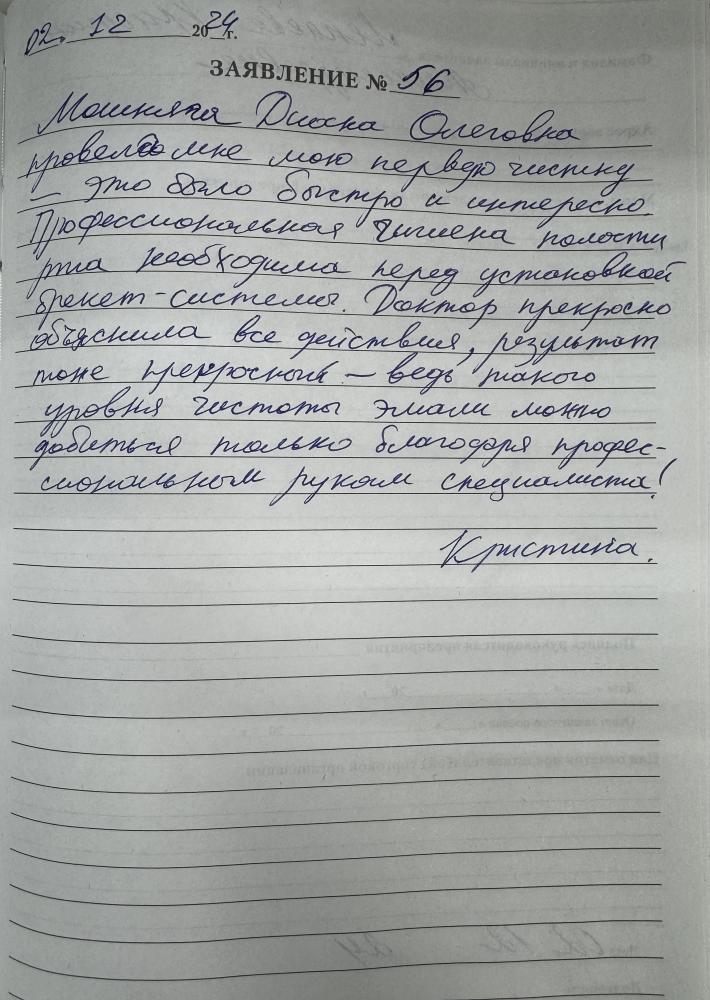 02. 12 2024 г.
ЗАЯВЛЕНИЕ № 56
Диана Олеговна
провела мне мою первую чистку
— это было быстро и интересно.
Профессиональная гигиена полости
рта необходима перед установкой
брекет-системы. Доктор прекрасно
объяснила все действия, результат
тоже прекрасный — ведь такого
уровня чистоты эмали можно
добиться только благодаря профес-
сиональным рукам специалиста!
Кристина.